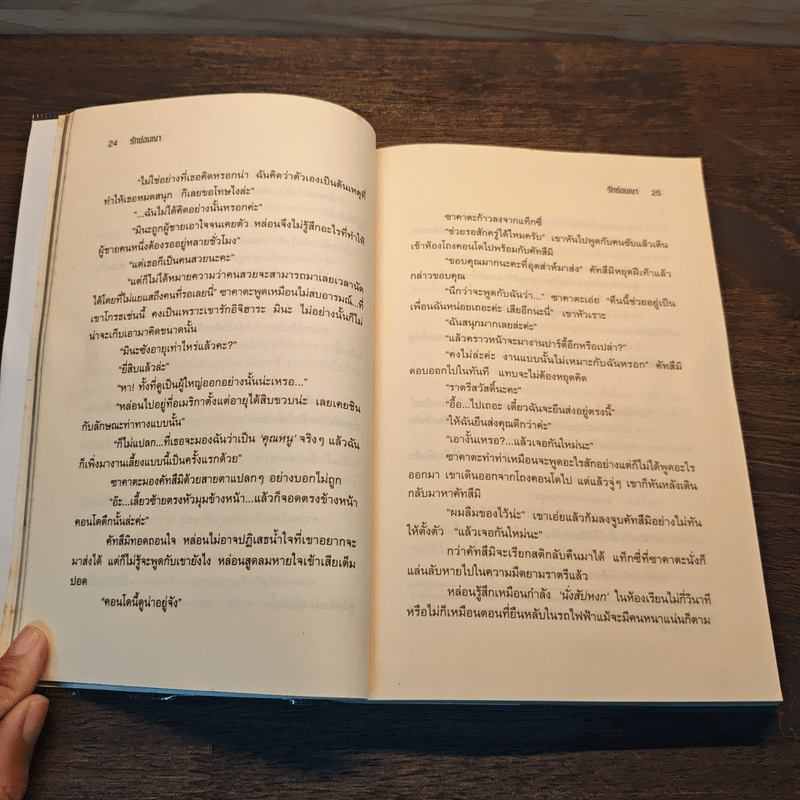 24 รักซ่อนเงา
"ไม่ใช่อย่างที่เธอคิดหรอกน่า ฉันคิดว่าตัวเองเป็นต้นเหตุที่
ทำให้เธอหมดสนุก ก็เลยขอโทษไงล่ะ"
"...ฉันไม่ได้คิดอย่างนั้นหรอกค่ะ"
"มินะถูกผู้ชายเอาใจจนเคยตัว หล่อนจึงไม่รู้สึกอะไรที่ทำให้
ผู้ชายคนหนึ่งต้องรออยู่หลายชั่วโมง"
"แต่เธอก็เป็นคนสวยนะคะ"
"แต่ก็ไม่ได้หมายความว่าคนสวยจะสามารถมาเลยเวลานัด
ได้โดยที่ไม่แยแสถึงคนที่รอเลยนี่" ซาคาตะพูดเหมือนไม่สบอารมณ์...ที่
เขาโกรธเช่นนี้ คงเป็นเพราะเขารักอิจิฮาระ มินะ ไม่อย่างนั้นก็ไม่
น่าจะเก็บเอามาคิดขนาดนั้น
"มินะซังอายุเท่าไหร่แล้วคะ?"
"ยี่สิบแล้วล่ะ"
"หา! ทั้งที่ดูเป็นผู้ใหญ่ออกอย่างนั้นน่ะเหรอ..."
"หล่อนไปอยู่ที่อเมริกาตั้งแต่อายุได้สิบขวบน่ะ เลยเคยชิน
กับลักษณะท่าทางแบบนั้น"
"ก็ไม่แปลก...ที่เธอจะมองฉันว่าเป็น 'คุณหนู' จริงๆ แล้วฉัน
ก็เพิ่งมางานเลี้ยงแบบนี้เป็นครั้งแรกด้วย"
ซาคาตะมองคัทสึมิด้วยสายตาแปลกๆ อย่างบอกไม่ถูก
"อ๊ะ...เลี้ยวซ้ายตรงหัวมุมข้างหน้า...แล้วก็จอดตรงข้างหน้า
คอนโดตึกนั้นล่ะค่ะ"
คัทสึมิทอดถอนใจ หล่อนไม่อาจปฏิเสธน้ำใจที่เขาอยากจะ
มาส่งได้ แต่ก็ไม่รู้จะพูดกับเขายังไง หล่อนสูดลมหายใจเข้าเสียเต็ม
ปอด
"คอนโดนี้ดูน่าอยู่จัง"
รักซ่อนเงา 25
ซาคาตะก้าวลงจากแท็กซี่
"ช่วยรอสักครู่ได้ไหมครับ" เขาหันไปพูดกับคนขับแล้วเดิน
เข้าห้องโถงคอนโดไปพร้อมกับคัทสึมิ
"ขอบคุณมากนะคะที่อุตส่าห์มาส่ง" คัทสึมิหยุดฝีเท้าแล้ว
กล่าวขอบคุณ
"นึกว่าจะพูดกับฉันว่า..." ซาคาตะเอ่ย "คืนนี้ช่วยอยู่เป็น
เพื่อนฉันหน่อยเถอะค่ะ เสียอีกนะนี่" เขาหัวเราะ
"ฉันสนุกมากเลยล่ะค่ะ"
"แล้วคราวหน้าจะมางานปาร์ตี้อีกหรือเปล่า?"
"คงไม่ล่ะค่ะ งานแบบนั้นไม่เหมาะกับฉันหรอก" คัทสึมิ
ตอบออกไปในทันที แทบจะไม่ต้องหยุดคิด
"ราตรีสวัสดิ์นะคะ"
"อื้อ...ไปเถอะ เดี๋ยวฉันจะยืนส่งอยู่ตรงนี้"
"ให้ฉันยืนส่งคุณดีกว่าค่ะ"
"เอางั้นเหรอ?...แล้วเจอกันใหม่นะ"
ซาคาตะทำท่าเหมือนจะพูดอะไรสักอย่างแต่ก็ไม่ได้พูดอะไร
ออกมา เขาเดินออกจากโถงคอนโดไป แต่แล้วจู่ๆ เขาก็หันหลังเดิน
กลับมาหาคัทสึมิ
"ผมลืมของไว้น่ะ" เขาเอ่ยแล้วก้มลงจูบคัทสึมิอย่างไม่ทัน
ให้ตั้งตัว "แล้วเจอกันใหม่นะ"
กว่าคัทสึมิจะเรียกสติกลับคืนมาได้ แท็กซี่ที่ซาคาตะนั่งก็
แล่นลับหายไปในความมืดยามราตรีแล้ว
หล่อนรู้สึกเหมือนกำลัง 'นั่งสัปหงก' ในห้องเรียนไม่กี่วินาที
หรือไม่ก็เหมือนตอนที่ยืนหลับในรถไฟฟ้าแม้จะมีคนหนาแน่นก็ตาม